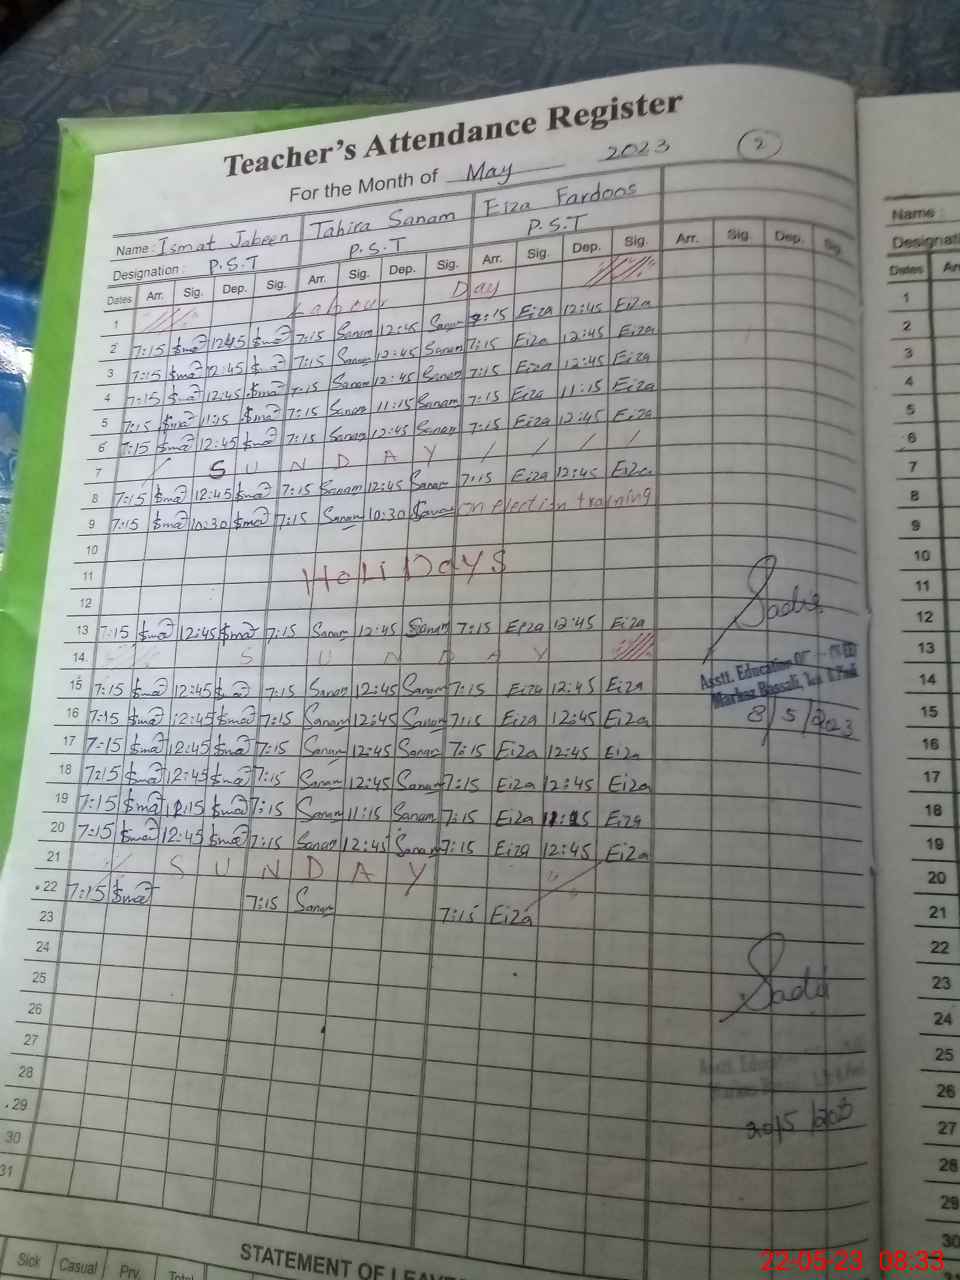 Teacher's Attendance Register
For the Month of May 2023 2
Name: Ismat Jabeen Tahira Sanam Eiza Fardoos
Designation: P.S.T P.S.T P.S.T
Dates Arr. Sig. Dep. Sig. Arr. Sig. Dep. Sig. Arr. Sig. Dep. Sig. Arr. Sig. Dep. Sig.
1 Labour Day
2 7:15 12:45 7:15 Sanam 12:45 Sanam 7:15 Eiza 12:45 Eiza
3 7:15 12:45 7:15 Sanam 12:45 Sanam 7:15 Eiza 12:45 Eiza
4 7:15 12:45 7:15 Sanam 12:45 Sanam 7:15 Eiza 12:45 Eiza
5 7:15 11:15 7:15 Sanam 11:15 Sanam 7:15 Eiza 11:15 Eiza
6 7:15 12:45 7:15 Sanam 12:45 Sanam 7:15 Eiza 12:45 Eiza
7 S U N D A Y
8 7:15 12:45 7:15 Sanam 12:45 Sanam 7:15 Eiza 12:45 Eiza
9 7:15 10:30 7:15 Sanam 10:30 Sanam on election training
10
11 HoliDays
12
13 7:15 12:45 7:15 Sanam 12:45 Sanam 7:15 Eiza 12:45 Eiza
14 S U N D A Y
15 7:15 12:45 7:15 Sanam 12:45 Sanam 7:15 Eiza 12:45 Eiza
16 7:15 12:45 7:15 Sanam 12:45 Sanam 7:15 Eiza 12:45 Eiza
17 7:15 12:45 7:15 Sanam 12:45 Sanam 7:15 Eiza 12:45 Eiza
18 7:15 12:45 7:15 Sanam 12:45 Sanam 7:15 Eiza 12:45 Eiza
19 7:15 11:15 7:15 Sanam 11:15 Sanam 7:15 Eiza 11:15 Eiza
20 7:15 12:45 7:15 Sanam 12:45 Sanam 7:15 Eiza 12:45 Eiza
21 S U N D A Y
22 7:15 7:15 Sanam 7:15 Eiza
23
24
25
26
27
28
29
30
31
Asstt. Education
Markaz
8/5/2023
Asstt.
STATEMENT OF LEAVE
Sick Casual Prv. Total
Name :
Designati
Dates
1
2
3
4
5
6
7
8
9
10
11
12
13
14
15
16
17
18
19
20
21
22
23
24
25
26
27
28
29
30
22-05-23 08:33